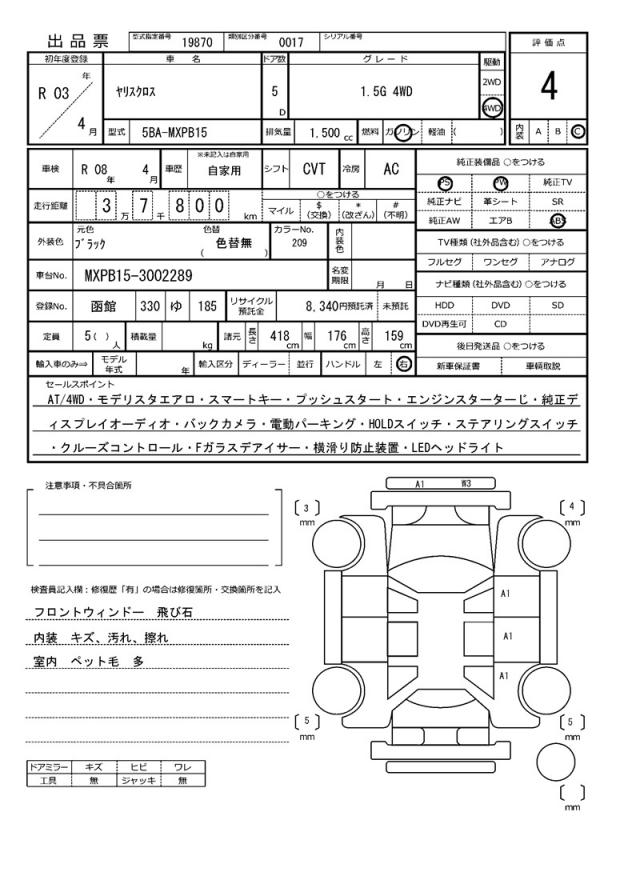 出品票
型式指定番号 19870 類別区分番号 0017 シリアル番号
評価点
4
内装 A B C
初年度登録 車名 ドア数 グレード 駆動
R 03 年 4 月
ヤリスクロス 5 D 1.5G 4WD
2WD
4WD
型式 5BA-MXPB15 排気量 1.500 cc 燃料 ガソリン 軽油 ( )
車検 R 08 年 4 月 車歴 ※未記入は自家用 自家用 シフト CVT 冷房 AC
走行距離 3 万 7 千 8 0 0 km
○をつける
マイル $(交換) *(改ざん) #(不明)
外装色 元色 ブラック 色替 ( 色替無 ) カラーNo. 209 内装色
車台No. MXPB15-3002289 名変期限 月 日
登録No. 函館 330 ゆ 185 リサイクル預託金 8,340円預託済 未預託
定員 5( ) 人 積載量 kg 諸元 長さ 418 cm 幅 176 cm 高さ 159 cm
輸入車のみ⇒ モデル年式 年 輸入区分 ディーラー 並行 ハンドル 左 右
純正装備品 ○をつける
PS PW 純正TV
純正ナビ 革シート SR
純正AW エアB ABS
TV種類 (社外品含む) ○をつける
フルセグ ワンセグ アナログ
ナビ種類 (社外品含む) ○をつける
HDD DVD SD
DVD再生可 CD
後日発送品 ○をつける
新車保証書 車輌取説
セールスポイント
AT/4WD・モデリスタエアロ・スマートキー・プッシュスタート・エンジンスターターじ・純正デ
ィスプレイオーディオ・バックカメラ・電動パーキング・HOLDスイッチ・ステアリングスイッチ
・クルーズコントロール・Fガラスデアイサー・横滑り防止装置・LEDヘッドライト
注意事項・不具合箇所
検査員記入欄：修復歴「有」の場合は修復箇所・交換箇所を記入
フロントウィンドー 飛び石
内装 キズ、汚れ、擦れ
室内 ペット毛 多
ドアミラー キズ ヒビ ワレ
工具 無 ジャッキ 無
A1 W3
3 mm
4 mm
A1
A1
A1
5 mm
5 mm
mm